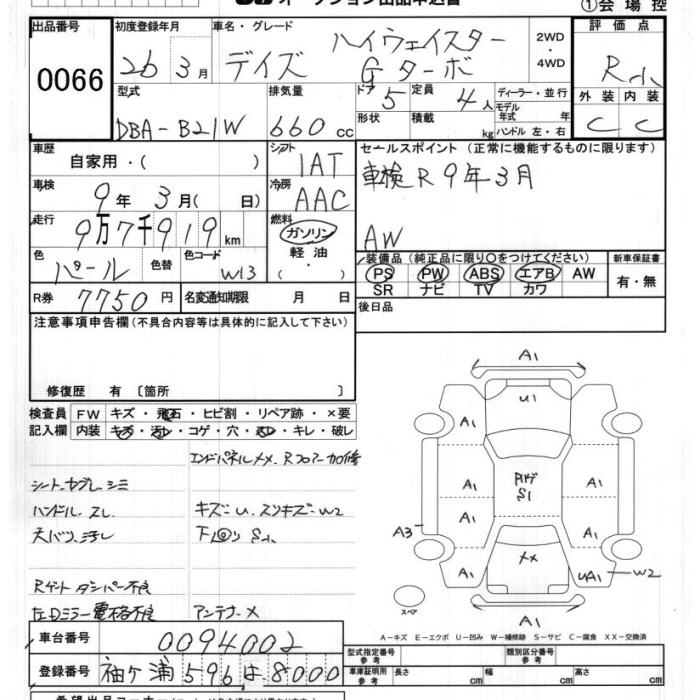 ①会場控
出品番号 0066
初度登録年月 26 3月
車名・グレード デイズ ハイウェイスター Gターボ
2WD・4WD
評価点 R
外装 C 内装 C
型式 DBA-B21W
排気量 660 cc
ドア 5
定員 4人
形状 積載 kg
ディーラー・並行
モデル年式 年式
ハンドル 左・右
車歴 自家用・( )
シフト 1AT
セールスポイント (正常に機能するものに限ります)
車検R9年3月
AW
車検 9年 3月( 日)
冷房 AAC
走行 9万7千919km
燃料 ガソリン・軽油・( )
色 パール 色替 色コード W13
装備品 (純正品に限り○をつけてください)
PS PW ABS エアB AW
SR ナビ TV カワ
新車保証書 有・無
R券 7750円
名変通知期限 月 日
後日品
注意事項申告欄(不具合内容等は具体的に記入して下さい)
修復歴 有〔箇所 〕
検査員記入欄
FW キズ・飛石・ヒビ割・リペア跡・×要
内装 キズ・汚レ・コゲ・穴・スレ・キレ・破レ
エンドパネルメメ、Rフロアー加修
シート、ヤブレ、シミ
ハンドル スレ
キズ=U、スリキズ=W2
天バリ、汚レ
下回リ S
Rゲートダンパー不良
左Dミラー電格不良
アンテナ-×
A1
U1
A1 A1
ルーフ S1
A1 A1
A3 A1 A1
メメ
A1 UA1 W2
A1
スペア
A-キズ E-エクボ U-凹み W-補修跡 S-サビ C-腐食 XX-交換済
車台番号 0094002
登録番号 袖ヶ浦 596 よ 8000
型式指定番号 参考
類別区分番号 参考
車庫証明用 参考 長さ 幅 高さ